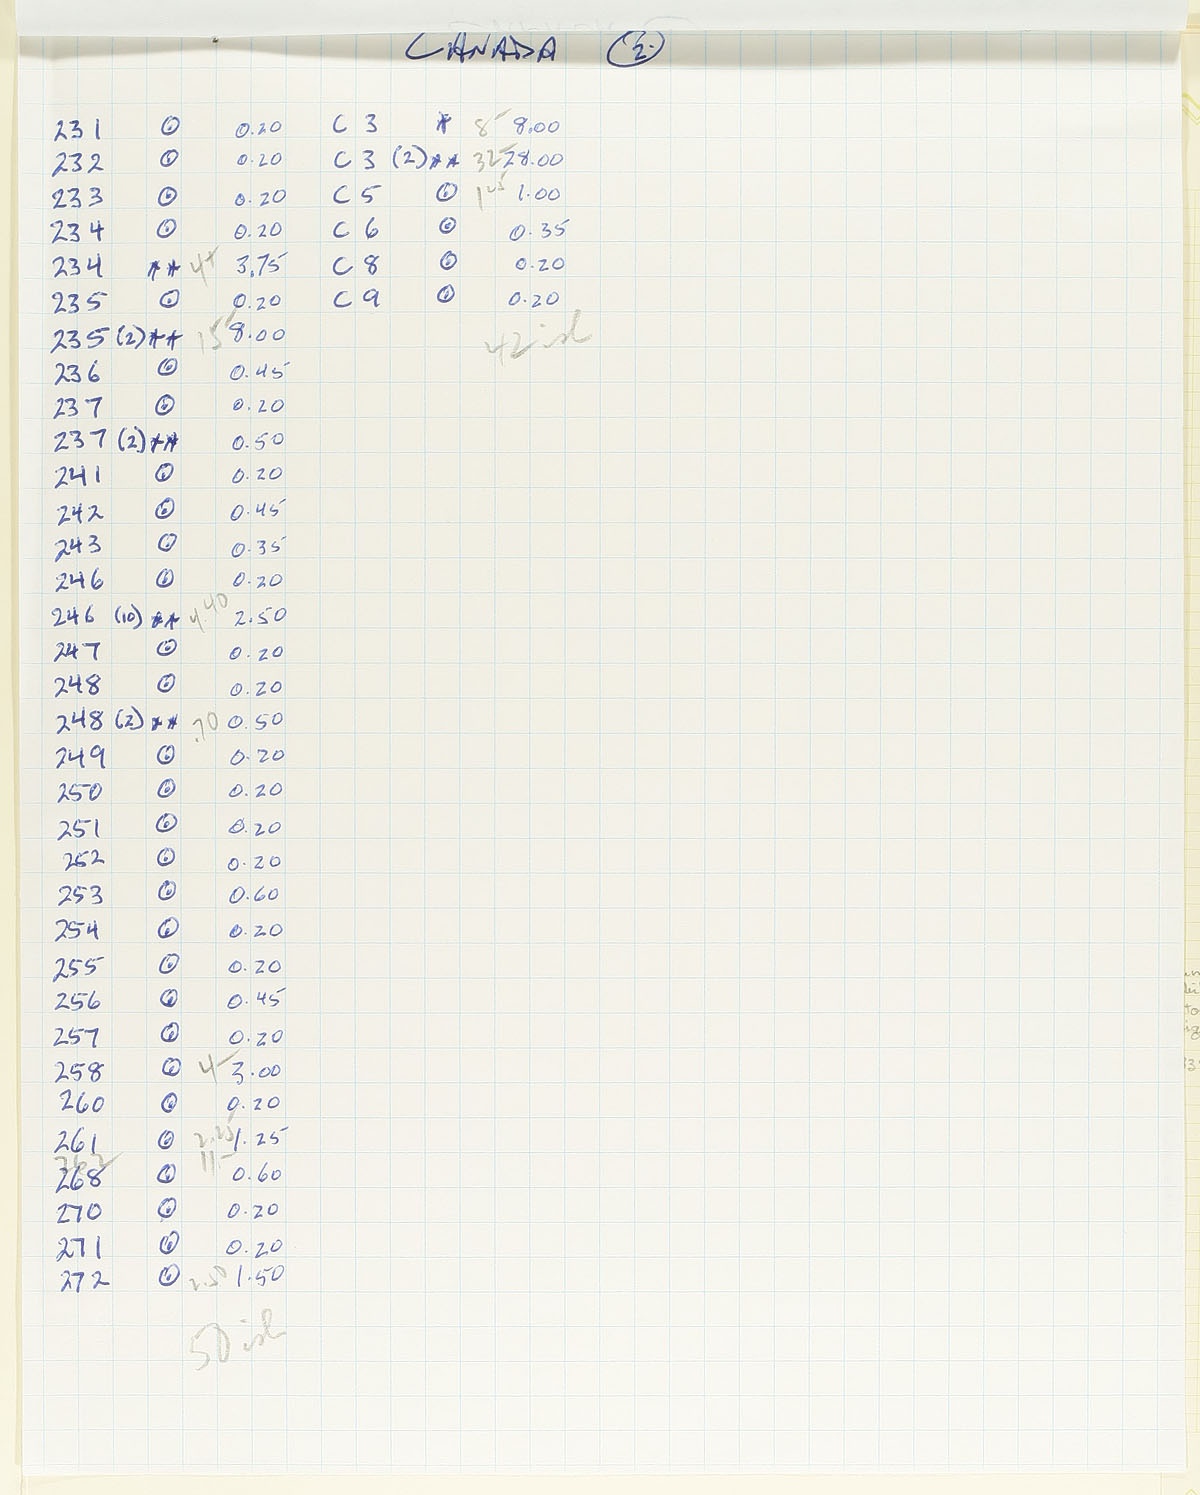 CANADA 2.
231 ⊙ 0.20
232 ⊙ 0.20
233 ⊙ 0.20
234 ⊙ 0.20
234 ** 4+ 3.75
235 ⊙ 0.20
235 (2) ** 15- 8.00
236 ⊙ 0.45
237 ⊙ 0.20
237 (2) ** 0.50
241 ⊙ 0.20
242 ⊙ 0.45
243 ⊙ 0.35
246 ⊙ 0.20
246 (10) ** 4.40 2.50
247 ⊙ 0.20
248 ⊙ 0.20
248 (2) ** .70 0.50
249 ⊙ 0.20
250 ⊙ 0.20
251 ⊙ 0.20
252 ⊙ 0.20
253 ⊙ 0.60
254 ⊙ 0.20
255 ⊙ 0.20
256 ⊙ 0.45
257 ⊙ 0.20
258 ⊙ 4- 3.00
260 ⊙ 0.20
261 ⊙ 2.25 1.25
262 11-
268 ⊙ 0.60
270 ⊙ 0.20
271 ⊙ 0.20
272 ⊙ 2.50 1.50
50 ish
C 3 * 8- 8.00
C 3 (2) ** 32- 28.00
C 5 ⊙ 1.25 1.00
C 6 ⊙ 0.35
C 8 ⊙ 0.20
C 9 ⊙ 0.20
42 ish